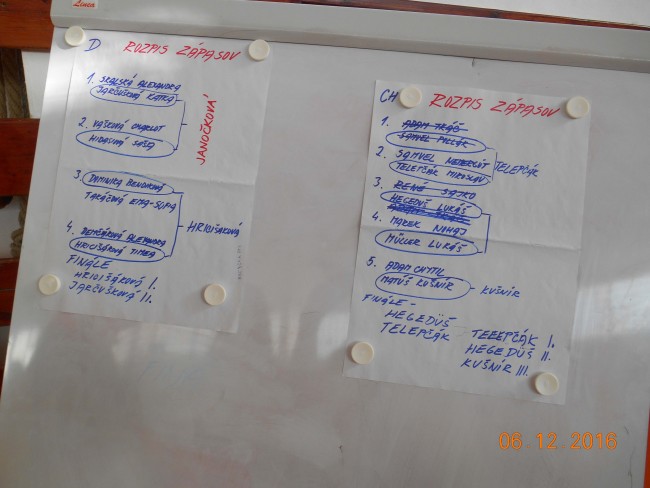 Linea
D ROZPIS ZÁPASOV
1. SKALSKÁ ALEXANDRA
JARČUŠKOVÁ KATKA
2. VAŠKOVÁ CHARLOT
HIDASIOVÁ SAŠA
JANOČKOVÁ
3. DOMINIKA
TAKÁČOVÁ EMA-SOFIA
4. ALEXANDRA
HRICIŠÁKOVÁ TIMEA
HRICIŠÁKOVÁ
FINÁLE
HRICIŠÁKOVÁ I.
JARČUŠKOVÁ II.
CH ROZPIS ZÁPASOV
1. ADAM TKÁČ
SAMUEL POLLÁK
2. SAMUEL
TELEPČÁK MIROSLAV
TELEPČÁK
3. RENÉ SAJKO
HEGEDÜŠ LUKÁŠ
4. MAREK NOHAJ
MÜLLER LUKÁŠ
5. ADAM CHYTIL
MATÚŠ KUŠNÍR - KUŠNÍR
FINÁLE -
HEGEDÜŠ
TELEPČÁK
TELEPČÁK I.
HEGEDÜŠ II.
KUŠNÍR III.
06.12.2016